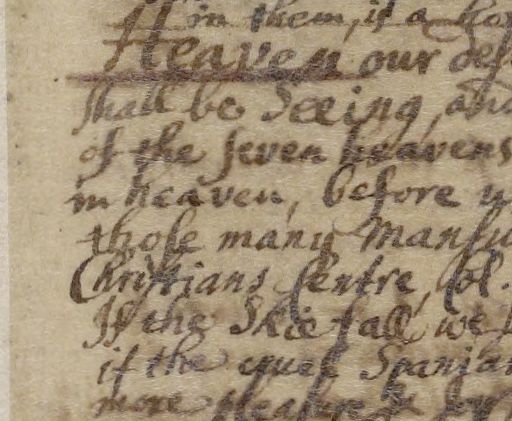 in them, is a
Heaven our des
shall be Seeing, and
of the seven heavens
in heaven, before u
those many Mansi
Christians Centre, Col.
If the Skie fall, we
if the cruel Spania
more pleasure &